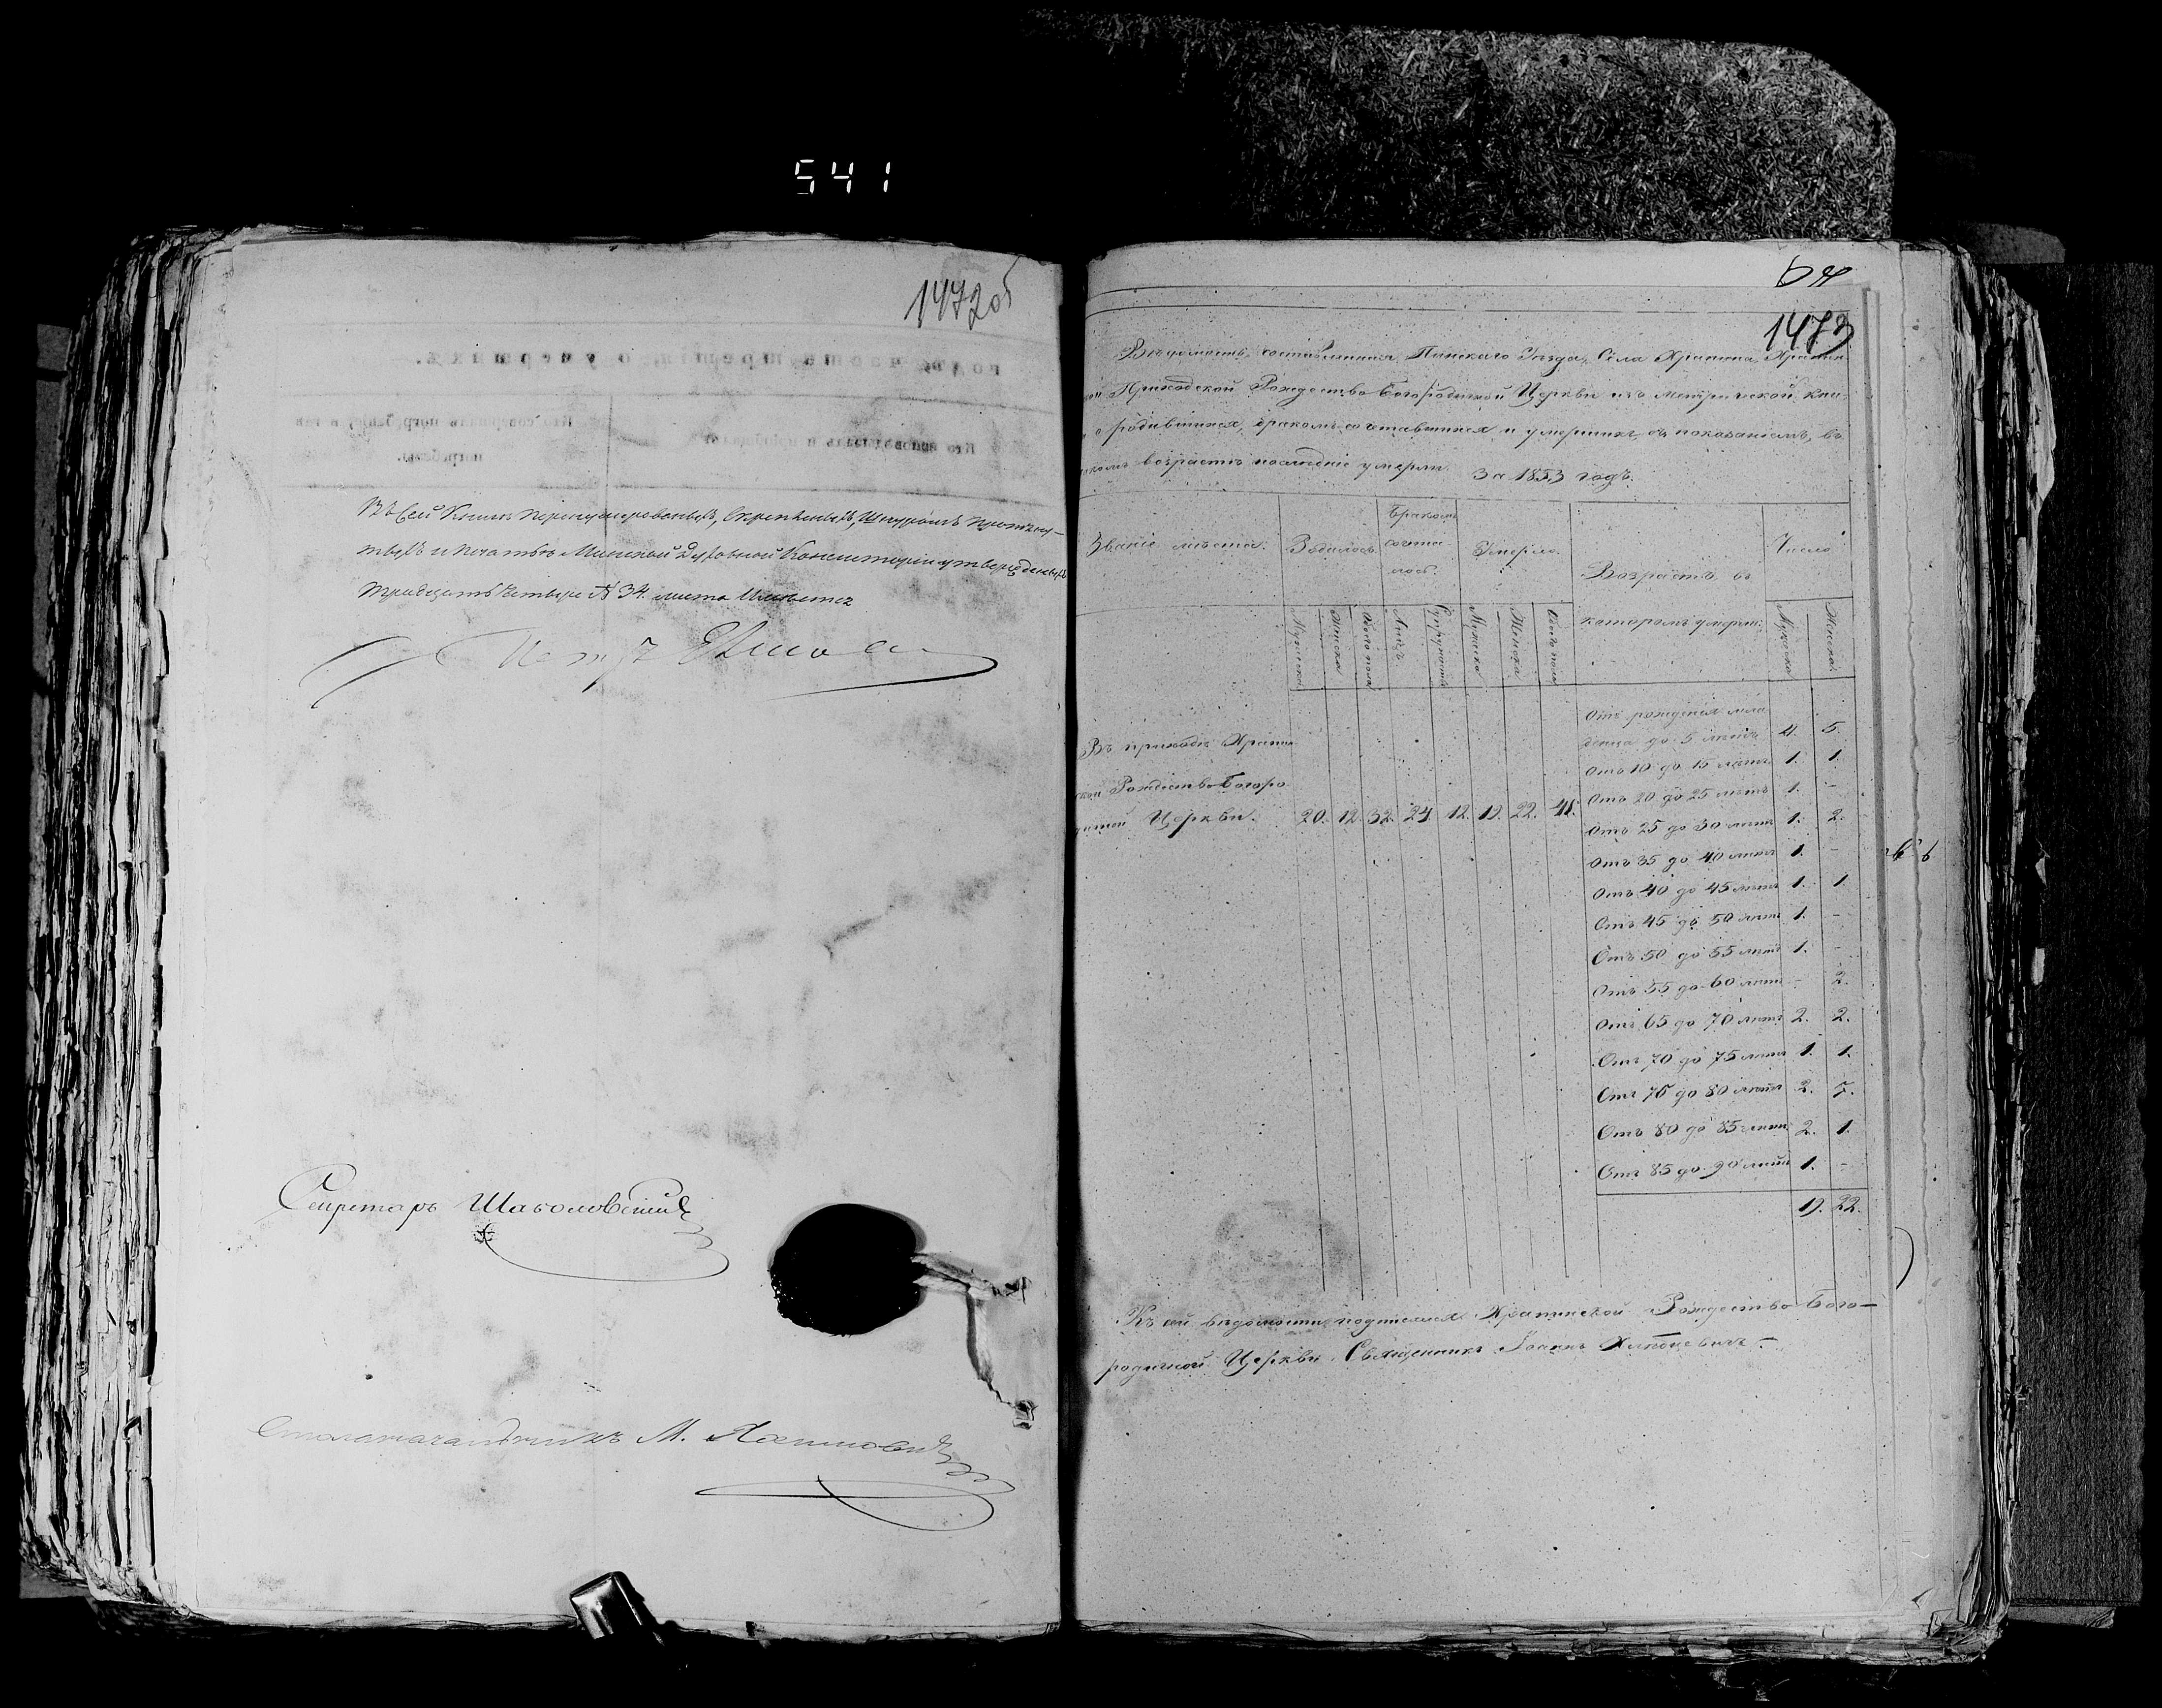 541
1472об
Въ сей Книгѣ перенумерованыхъ, скрепленыхъ, Шнуромъ протяну-
тыхъ и печатью Минской Духовной Консисторіи утвержденыхъ
тридцать четыре № 34 листа имѣется
Петръ
Секретарь
Столоначальникъ М.
1473
Вѣдомость, составленная, Пинскаго Уѣзда, Села Храпина, Храпин
Приходской Рождество Богородичной Церкви изъ метрической кни-
о родившихся, бракомъ сочетавшихся и умершихъ съ показаніемъ, въ
возрастѣ послѣдніе умерли За 1853 годъ.
Званіе мѣста. Бракомъ сочта лось. Умерло. Возрастъ въ которомъ умерли: Число
Мужеска Женска Обоего пола Лицъ Супружествъ Мужеска Женска Обоего пола Мужеска Женска
Отъ рожденія мла
денца до 5 лѣтъ 4. 5
Въ приходѣ Храпин
Отъ 10 до 15 лѣтъ 1. 1.
ской Рождество Богоро
Отъ 20 до 25 лѣтъ 1. -
дичной Церкви. 20. 12. 32. 24. 12. 19. 22. 41.
Отъ 25 до 30 лѣтъ 1. 2.
Отъ 35 до 40 лѣтъ 1. -
Отъ 40 до 45 лѣтъ 1. 1
Отъ 45 до 50 лѣтъ 1. -
Отъ 50 до 55 лѣтъ 1. -
Отъ 55 до 60 лѣтъ - 2.
Отъ 65 до 70 лѣтъ 2. 2.
Отъ 70 до 75 лѣтъ 1. 1.
Отъ 75 до 80 лѣтъ 2. 7.
Отъ 80 до 85 лѣтъ 2. 1.
Отъ 85 до 90 лѣтъ 1. -
19. 22.
Къ сей вѣдомости подписался Храпинской Рождество Бого-
родичной Церкви Священникъ Іоаннъ